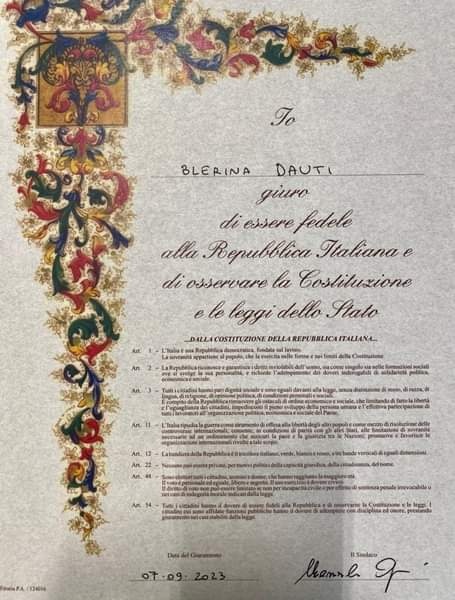 Io
BLERINA DAUTI
giuro
di essere fedele
alla Repubblica Italiana e
di osservare la Costituzione
e le leggi dello Stato
...DALLA COSTITUZIONE DELLA REPUBBLICA ITALIANA...
Art. 1 - L'Italia è una Repubblica democratica, fondata sul lavoro.
La sovranità appartiene al popolo, che la esercita nelle forme e nei limiti della Costituzione.
Art. 2 - La Repubblica riconosce e garantisce i diritti inviolabili dell'uomo, sia come singolo sia nelle formazioni sociali
ove si svolge la sua personalità, e richiede l'adempimento dei doveri inderogabili di solidarietà politica,
economica e sociale.
Art. 3 - Tutti i cittadini hanno pari dignità sociale e sono eguali davanti alla legge, senza distinzione di sesso, di razza, di
lingua, di religione, di opinioni politiche, di condizioni personali e sociali.
È compito della Repubblica rimuovere gli ostacoli di ordine economico e sociale, che limitando di fatto la libertà
e l'eguaglianza dei cittadini, impediscono il pieno sviluppo della persona umana e l'effettiva partecipazione di
tutti i lavoratori all'organizzazione politica, economica e sociale del Paese.
Art. 11 - L'Italia ripudia la guerra come strumento di offesa alla libertà degli altri popoli e come mezzo di risoluzione delle
controversie internazionali; consente, in condizioni di parità con gli altri Stati, alle limitazioni di sovranità
necessarie ad un ordinamento che assicuri la pace e la giustizia tra le Nazioni; promuove e favorisce le
organizzazioni internazionali rivolte a tale scopo.
Art. 12 - La bandiera della Repubblica è il tricolore italiano: verde, bianco e rosso, a tre bande verticali di eguali dimensioni.
Art. 22 - Nessuno può essere privato, per motivi politici, della capacità giuridica, della cittadinanza, del nome.
Art. 48 - Sono elettori tutti i cittadini, uomini e donne, che hanno raggiunto la maggiore età.
Il voto è personale ed eguale, libero e segreto. Il suo esercizio è dovere civico.
Il diritto di voto non può essere limitato se non per incapacità civile o per effetto di sentenza penale irrevocabile o
nei casi di indegnità morale indicati dalla legge.
Art. 54 - Tutti i cittadini hanno il dovere di essere fedeli alla Repubblica e di osservarne la Costituzione e le leggi. I
cittadini cui sono affidate funzioni pubbliche hanno il dovere di adempierle con disciplina ed onore, prestando
giuramento nei casi stabiliti dalla legge.
Data del Giuramento Il Sindaco
07.09.2023